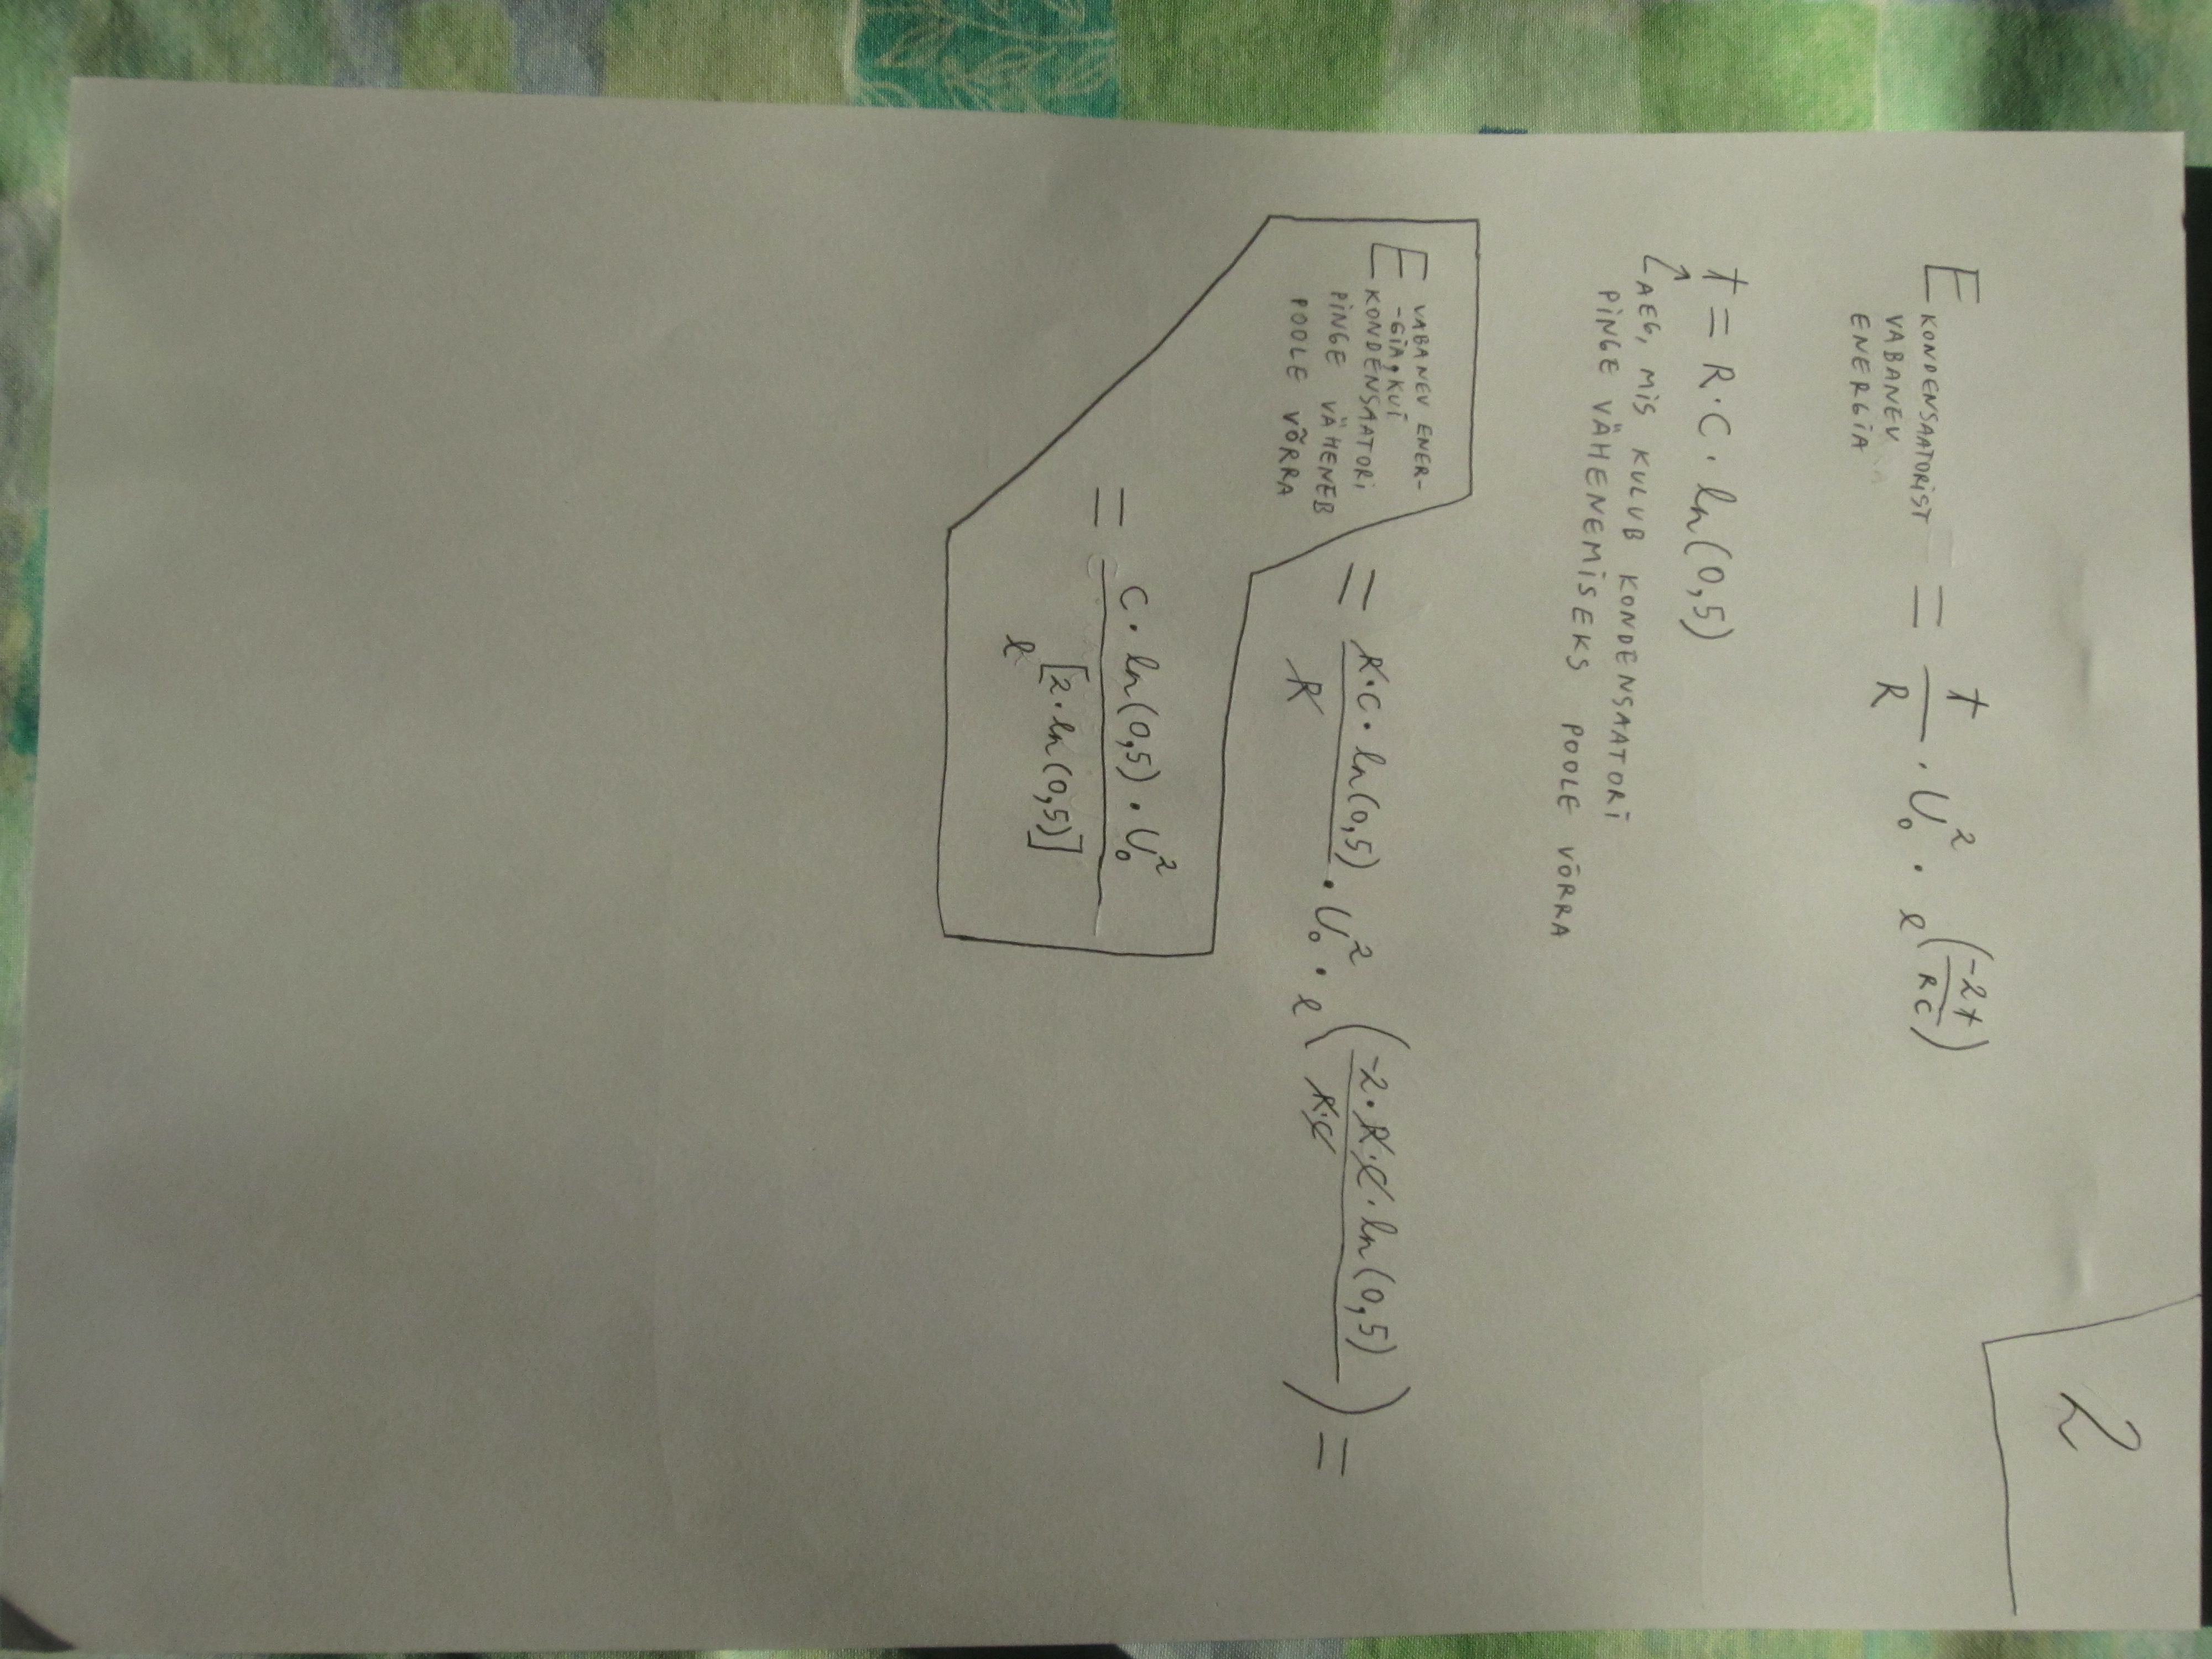 2
E KONDENSAATORIST VABANEV ENERGIA = t/R · U₀² · e^(-2t/RC)
t = R·C · ln(0,5)
↑ AEG, MIS KULUB KONDENSAATORI
PINGE VÄHENEMISEKS POOLE VÕRRA
E VABANEV ENER-
-GIA, KUI
KONDENSAATORI
PINGE VÄHENEB
POOLE VÕRRA
= R·C·ln(0,5)/R · U₀² · e^(-2·R·C·ln(0,5)/R·C) =
= C·ln(0,5)·U₀²/e^[2·ln(0,5)]